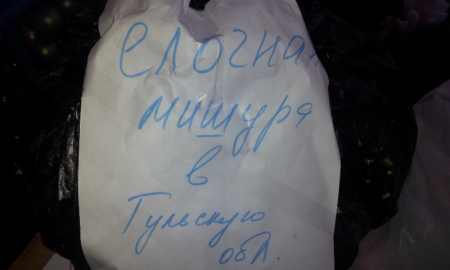 Елочная
мишура
в
Тульскую
обл.